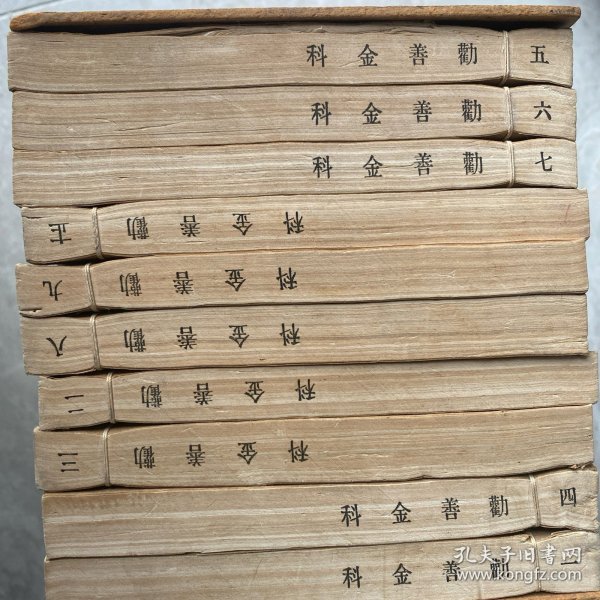 五 勸善金科
六 勸善金科
七 勸善金科
勸善金科
九 勸善金科
八 勸善金科
二 勸善金科
三 勸善金科
四 勸善金科
一 勸善金科
孔夫子旧书网
www.kongfz.com